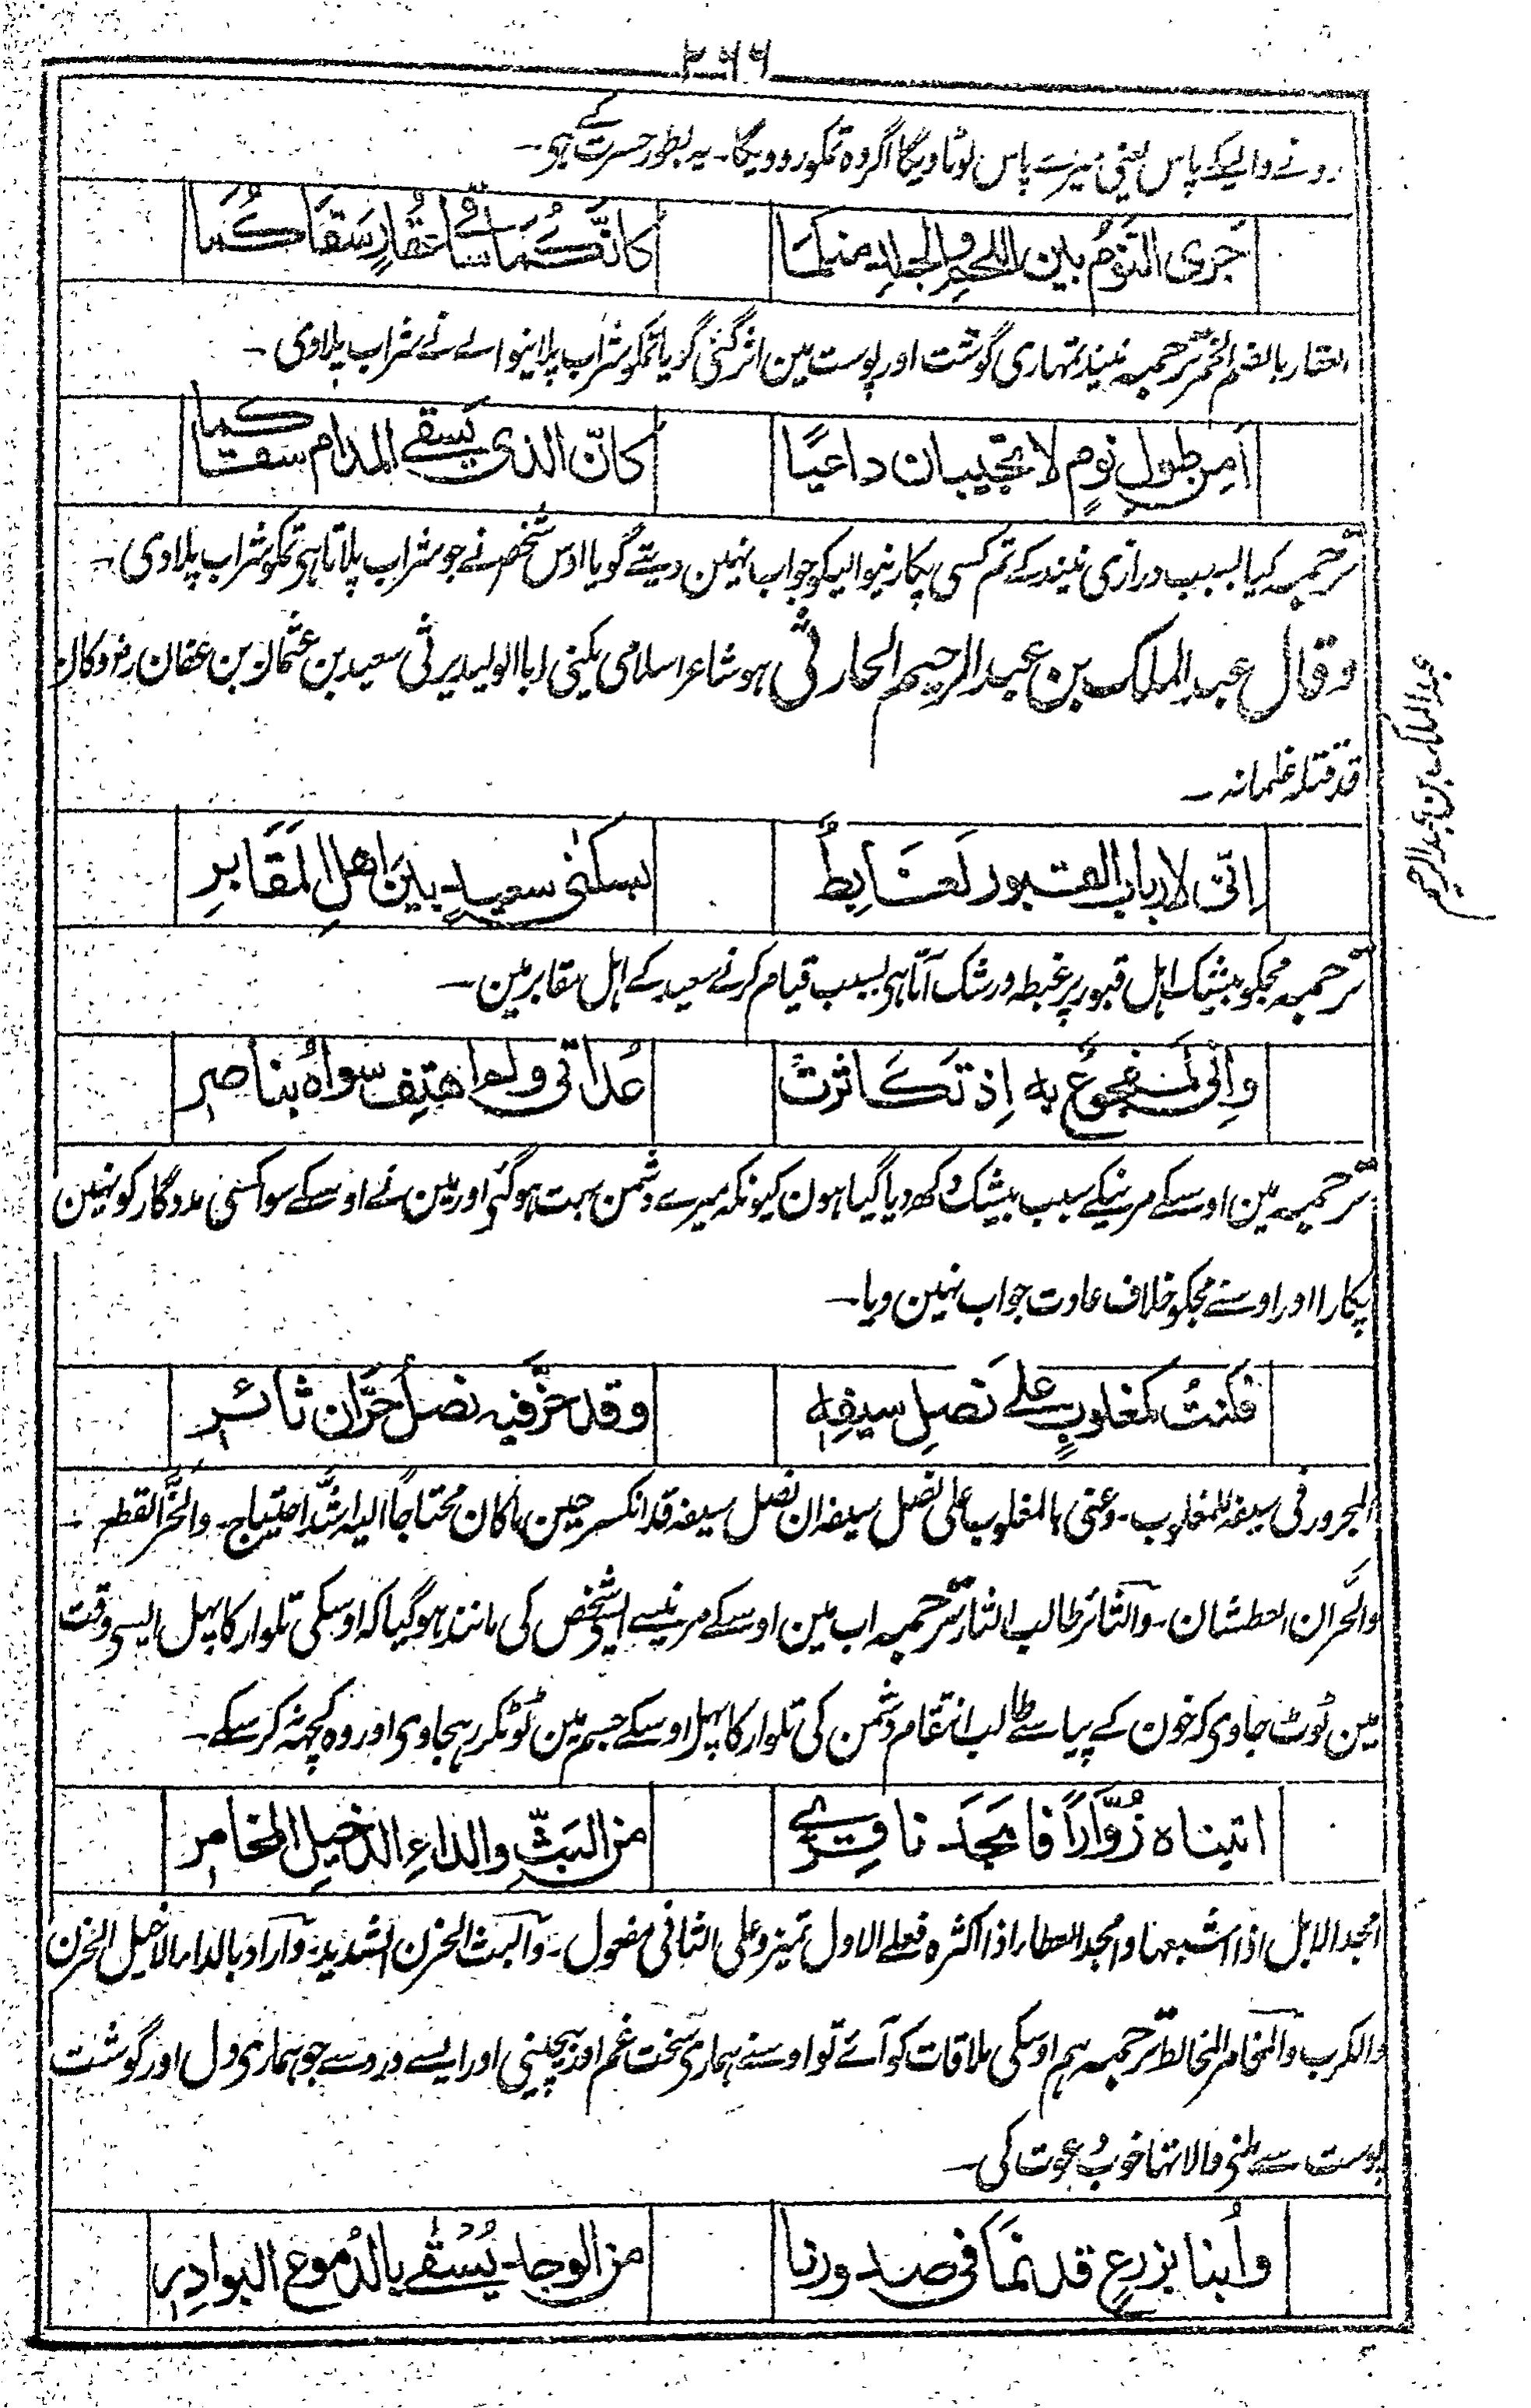 ۲۶۶
رونے والیکے پاس یعنی میرے پاس لوٹا دیگا اگر وہ تمکو رو ویگا۔ یہ بطور حسرت کے ہی۔
جَرى النَومُ بين اللحمِ والجلدِ منكما كانّكُما ساقي عُقارٍ سَقاكُما
العقار بالضم الخمر ترجمہ نیند تمہاری گوشت اور پوست مین اثر گئی گویا تمکو شراب پلانیوالے نے شراب پلاوی۔
اَمِن طولِ نومٍ لا تجيبان داعيًا كانّ الذى يَسقي المدام سقاكما
ترجمہ کیا بسبب درازی نیند کے تم کسی پکارنیوالیکو جواب نہین دیتے گویا اوس شخص نے جو شراب پلاتا ہی تمکو شراب پلاوی۔
وقال عبد الملك بن عبد الرحيم الحارثي ہو شاعر اسلامی یکنی ابا الولید یرثی سعید بن عثمان بن عفان رض وکان
قد قتلہ غلمانہ۔
عبد الملک بن عبد الرحیم
اِنّى لارباب القبور لَغَابِطٌ بسكنى سعيدٍ بين اهلِ المَقَابرِ
ترجمہ مجکو بیشک اہل قبور پر غبطہ ورشک آتا ہی بسبب قیام کرنے سعید کے اہل مقابر مین۔
وانّى لَمَفجوعٌ به اِذ تَكَاثرتْ عُداتى ولم اهتِف سواهُ بناصرِ
ترجمہ مین اوسکے مرنیکے سبب بیشک دکھ دیا گیا ہون کیونکہ میرے دشمن بہت ہوگئی اور مین نے اوسکے سوا کسی مددگار کو نہین
پکارا اور اوسنے مجکو خلاف عادت جواب نہین دیا۔
فكنتُ كمغلوبٍ على نصلِ سيفِهِ وقد حزّ فيه نصلُ حرّان ثائرِ
المجرور فی سیفہ للمغلوب۔ وعنی بالمغلوب علی نصل سیفہ ان نصل سیفہ قد انکسر حین ما کان محتاجاً الیہ اشد احتیاج۔ والحزّ القطع۔
والحران العطشان۔ والثائر طالب الثار ترجمہ اب مین اوسکے مرنیسے ایسی شخص کی مانند ہوگیا کہ اوسکی تلوار کا پہل ایسی وقت
مین ٹوٹ جاوی کہ خون کے پیاسے طالب انتقام دشمن کی تلوار کا پہل اوسکے جسم مین ٹوٹکر رہجاوی اور وہ کچھ نہ کرسکے۔
اتيناه زُوّاراً فامجَدَنا قِرى من البثّ والداءِ الدخيلِ المخامرِ
امجد الابل اذا اشبعہا وامجد العطاء اذا اکثرہ فعلے الاول تمیز وعلی الثانی مفعول۔ والبث الحزن الشدید۔ واراد بالداء الدخیل الحزن
والکرب والمخامر المخالط ترجمہ ہم اوسکی ملاقات کو آئے تو اوسنے ہماری سخت غم اور بیچینی اور ایسے درد سے جو ہماری دل اور گوشت
پوست سے ملنی والا تھا خوب دعوت کی۔
وابنا بزرعٍ قد نمَا فى صدورنا من الوجد يُسقى بالدُموع البوادِرِ